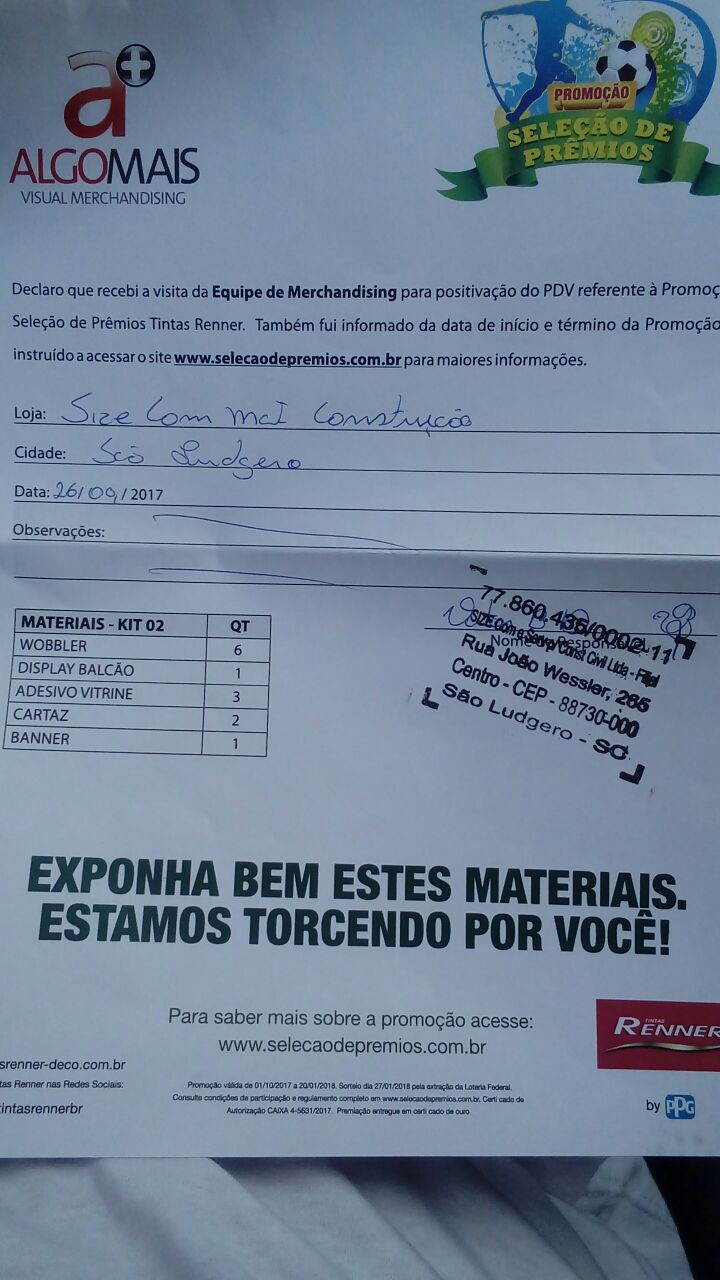 a+
ALGOMAIS
VISUAL MERCHANDISING
PROMOÇÃO
SELEÇÃO DE
PRÊMIOS
Declaro que recebi a visita da Equipe de Merchandising para positivação do PDV referente à Promoç
Seleção de Prêmios Tintas Renner. Também fui informado da data de início e término da Promoção
instruído a acessar o site www.selecaodepremios.com.br para maiores informações.
Loja: Size Com Mat Construção
Cidade: São Ludgero
Data: 26/09/2017
Observações:
MATERIAIS - KIT 02 QT
WOBBLER 6
DISPLAY BALCÃO 1
ADESIVO VITRINE 3
CARTAZ 2
BANNER 1
77.860.435/0002-11
Nome do Responsável
SIZE Const Civil Ltda - Filial
Rua João Wessler, 265
Centro - CEP - 88730-000
São Ludgero - SC
EXPONHA BEM ESTES MATERIAIS.
ESTAMOS TORCENDO POR VOCÊ!
Para saber mais sobre a promoção acesse:
www.selecaodepremios.com.br
TINTAS
RENNER
srenner-deco.com.br
tas Renner nas Redes Sociais:
tintasrennerbr
Promoção válida de 01/10/2017 a 20/01/2018. Sorteio dia 27/01/2018 pela extração da Loteria Federal.
Consulte condições de participação e regulamento completo em www.selecaodepremios.com.br. Certi cado de
Autorização CAIXA 4-5631/2017. Premiação entregue em certi cado de ouro.
by PPG